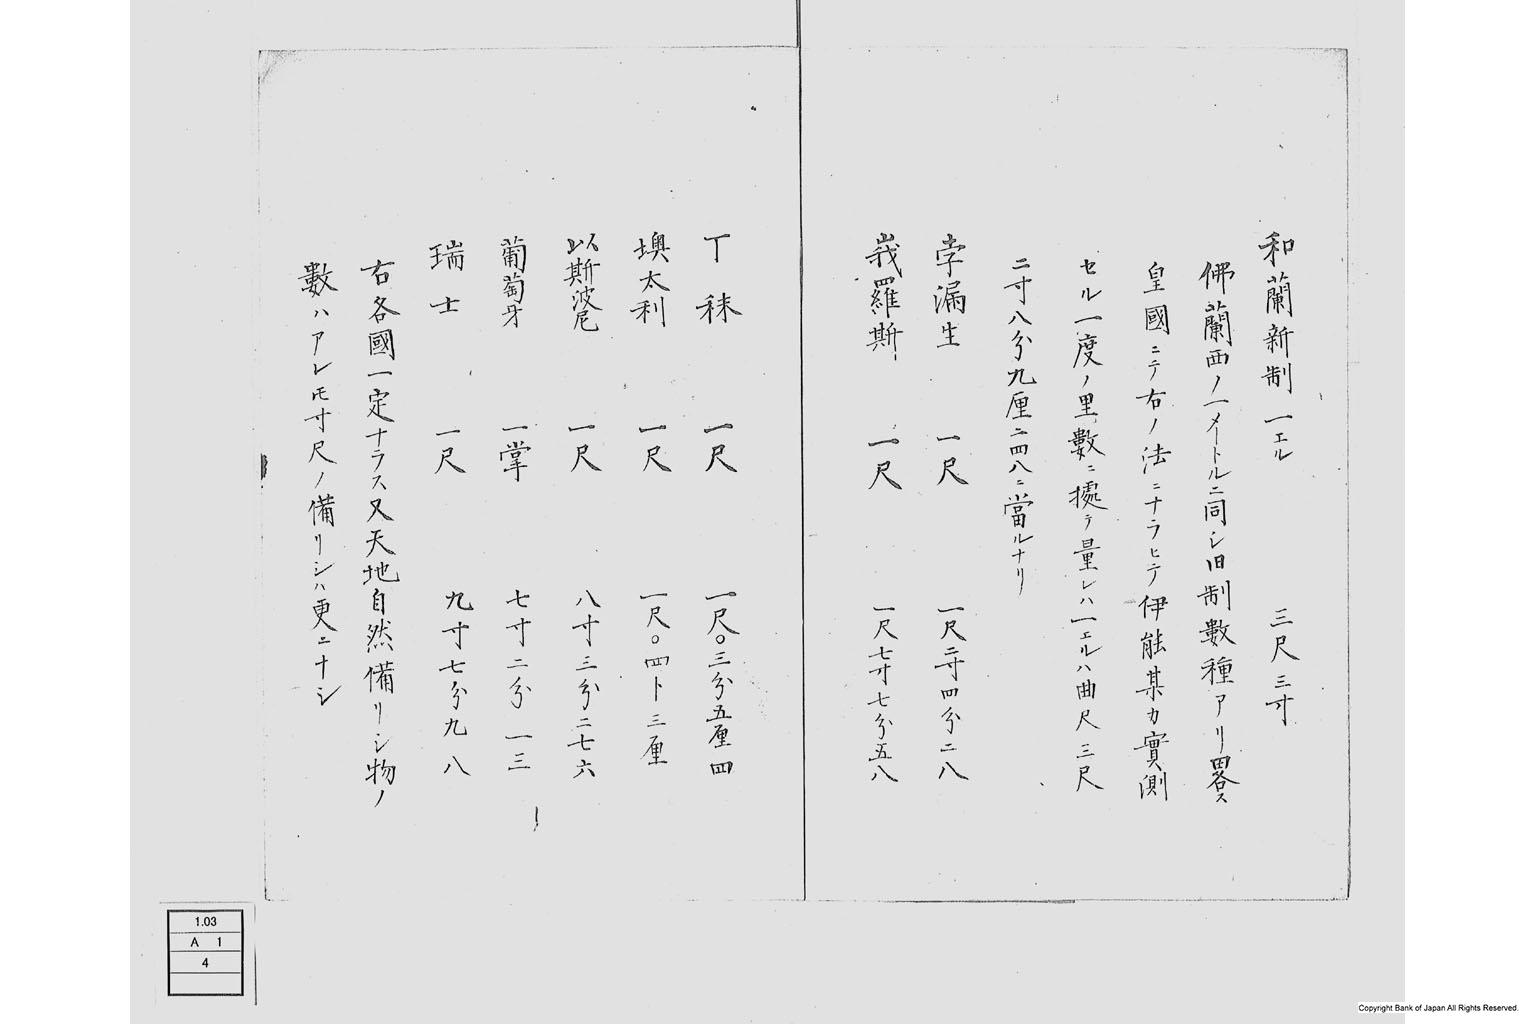 和蘭新制 一エル 三尺三寸
佛蘭西ノ一メートルニ同シ旧制數種アリ畧ス
皇國ニテ右ノ法ニナラヒテ伊能某カ實測
セル一度ノ里數ニ據テ量レハ一エルハ曲尺三尺
二寸八分九厘二四八ニ當ルナリ
孛漏生 一尺 一尺二寸四分二八
峩羅斯 一尺 一尺七寸七分五八
丁秣 一尺 一尺〇三分五厘四
墺太利 一尺 一尺〇四ト三厘
以斯波尼 一尺 八寸三分二七六
葡萄牙 一掌 七寸二分一三
瑞士 一尺 九寸七分九八
右各國一定ナラス又天地自然備リシ物ノ
數ハアレㇳモ寸尺ノ備リシハ更ニナシ
1.03
A 1
4
Copyright Bank of Japan All Rights Reserved.